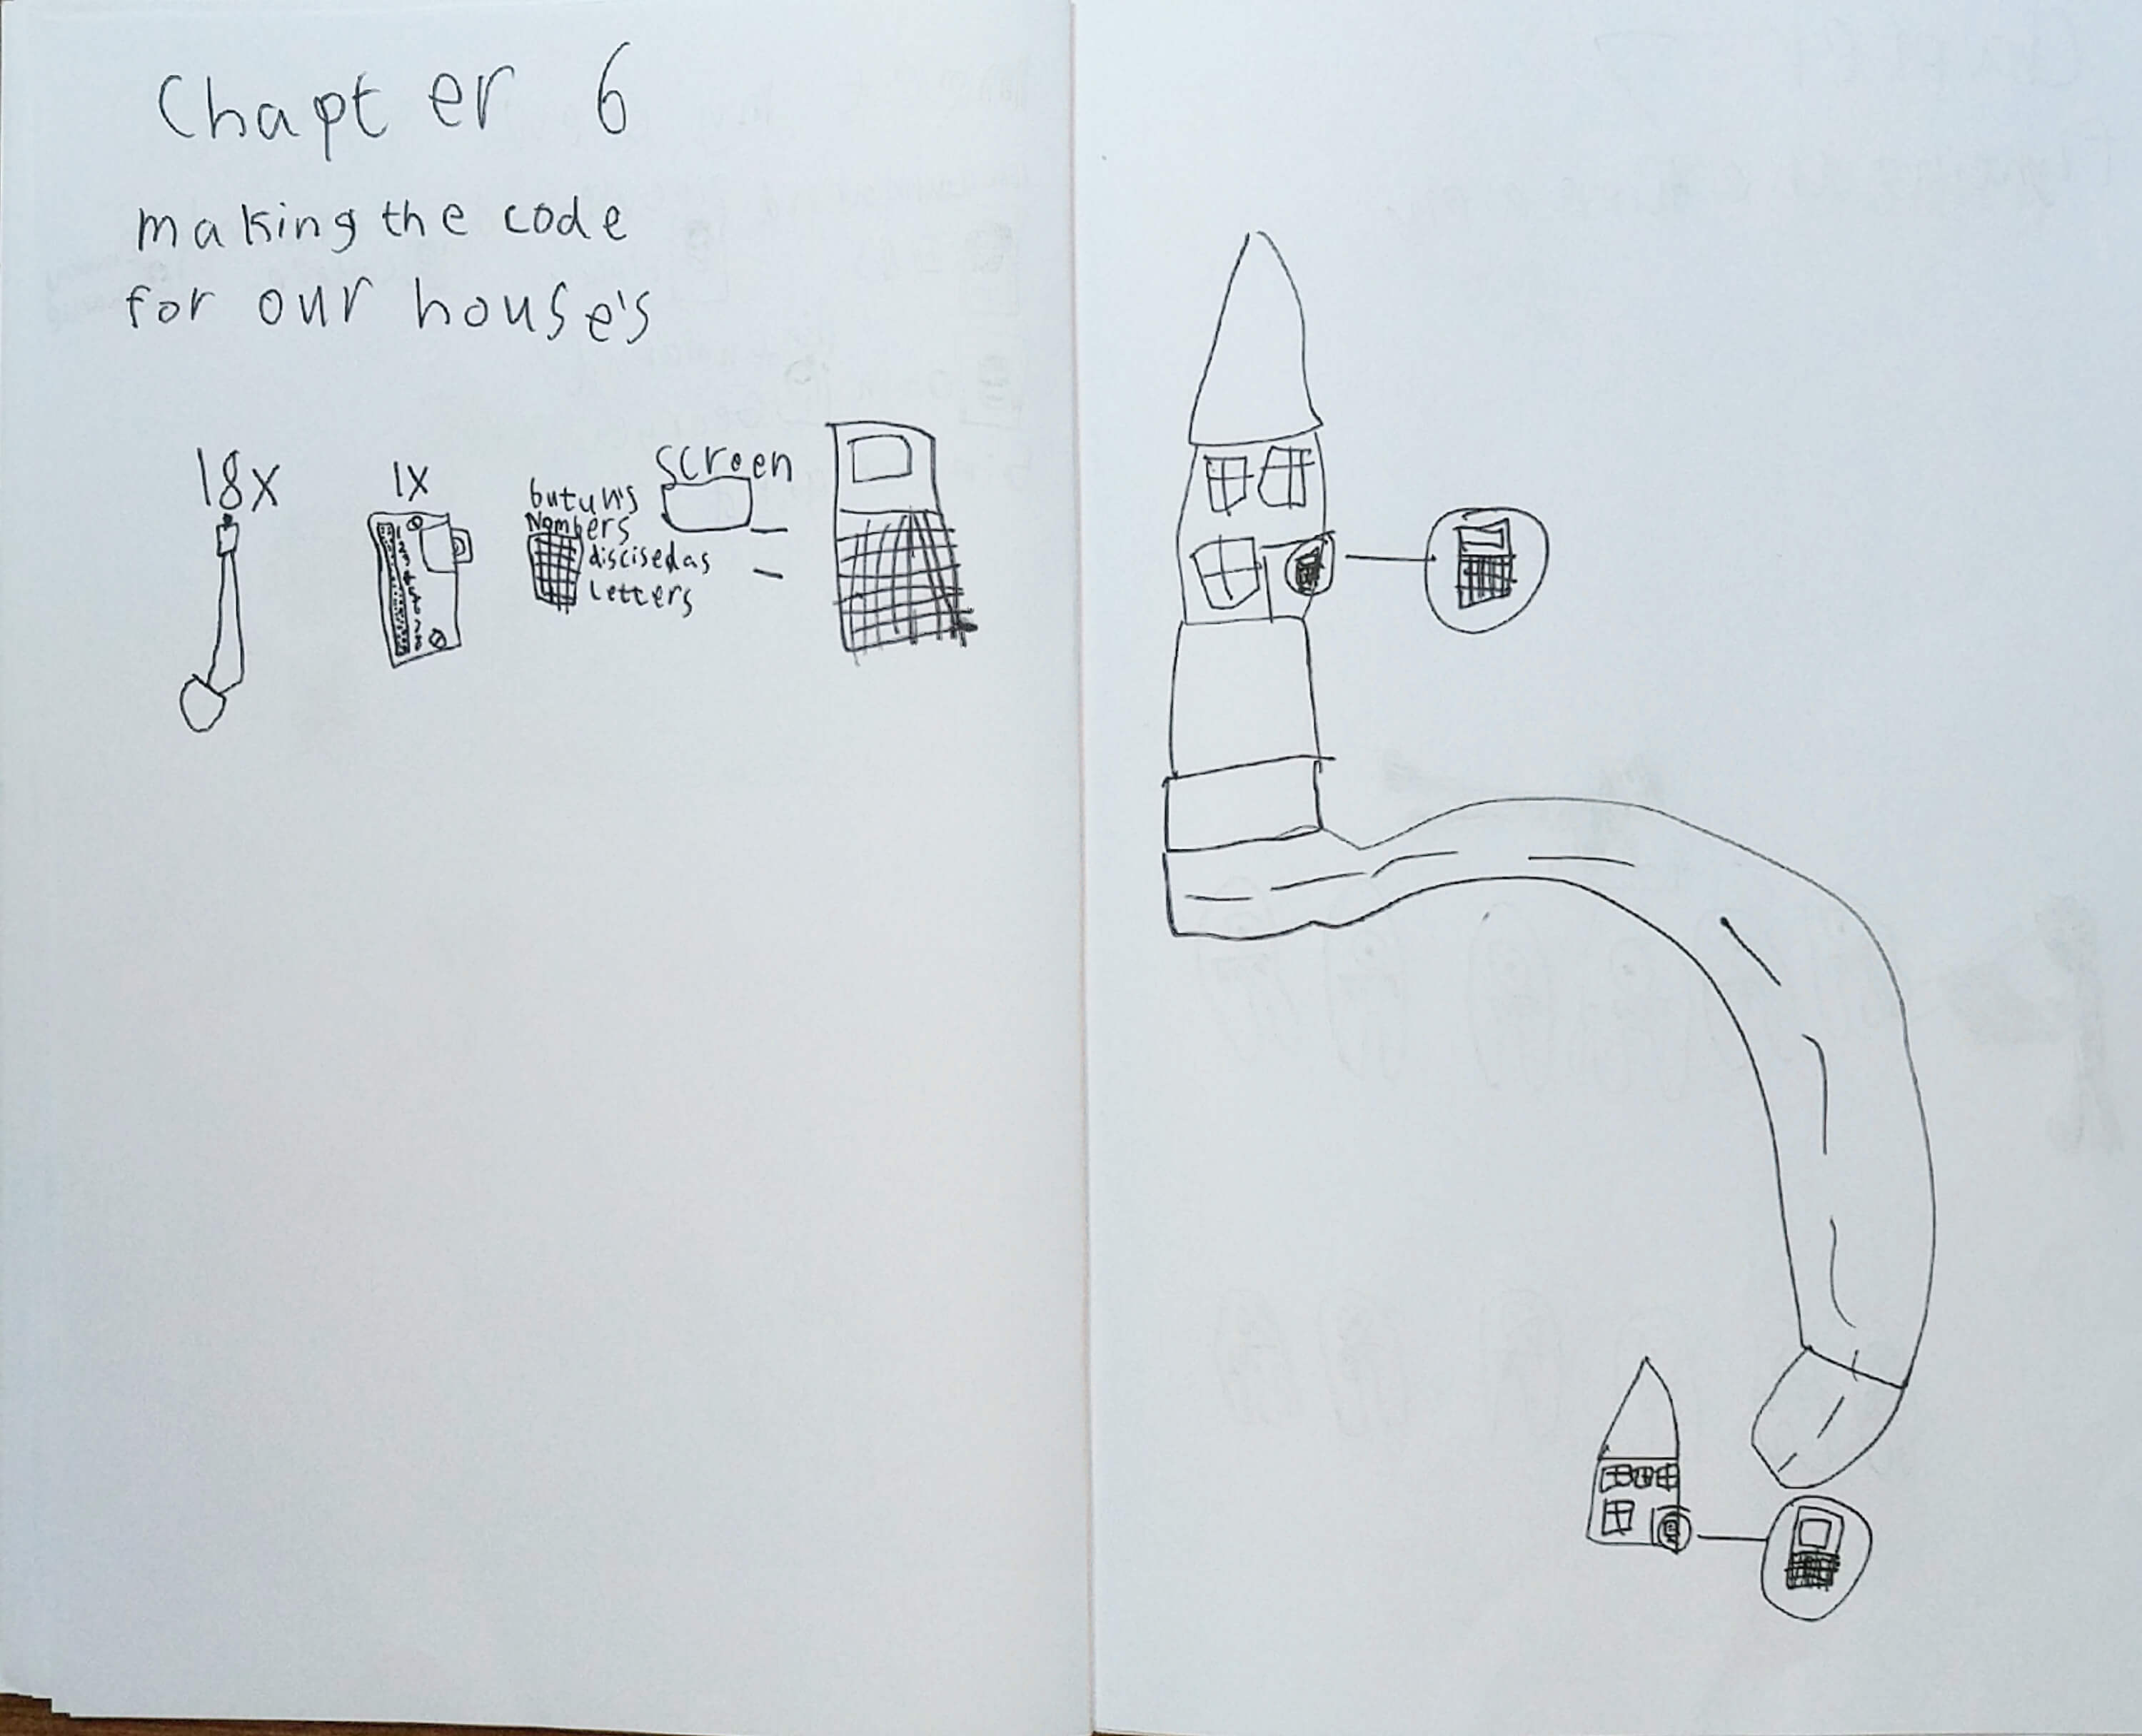 Chapter 6
making the code
for our house's
18x
1x
butun's
Nombers
discised as
letters
screen